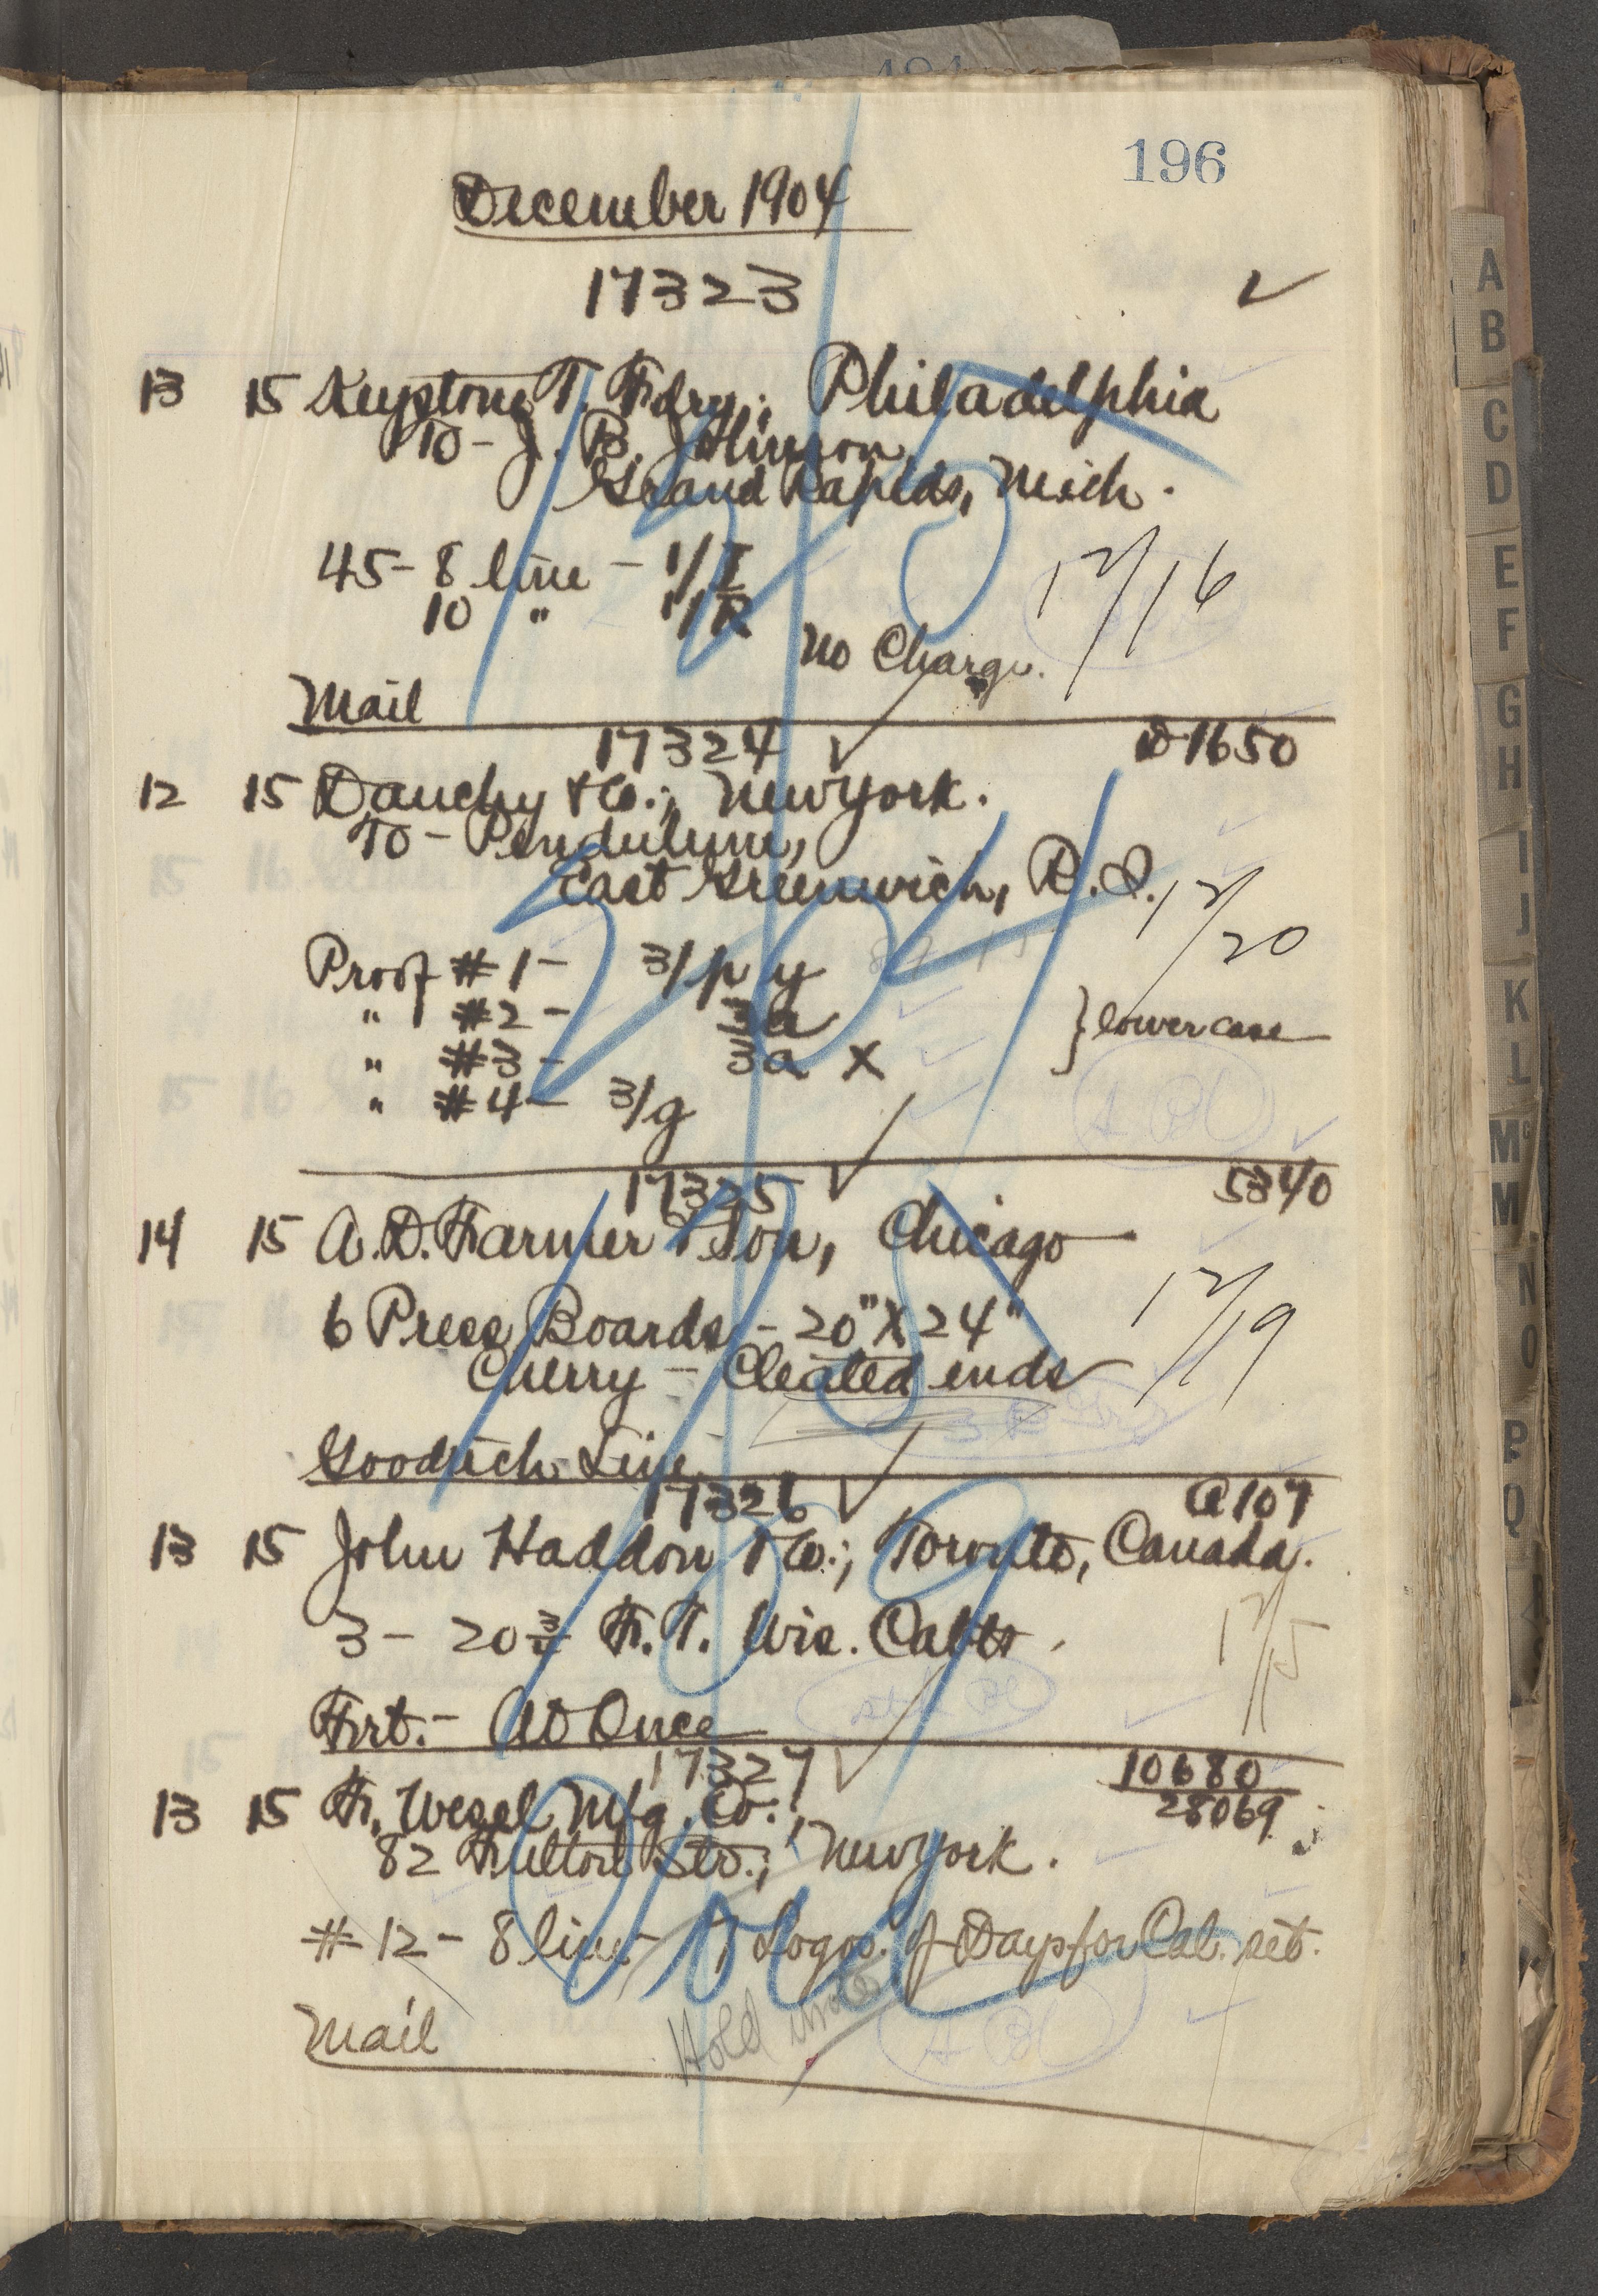 196
December 1904
17323 ✓
13 15 Keystone T. Fdry.; Philadelphia
To - J. B. Johnson,
Grand Rapids, Mich.
45 - 8 line - 1/I
10 " 1/R
12/16
No Charge.
Mail
17324 ✓ D 1650
12 15 Dauchy & Co.; New York.
To - Pendulum,
East Greenwich, R.I.
12/20
Proof #1 - 3/p y
" #2 - 3a
} lower case
" #3 - 3a X
" #4 - 3/g
17325 ✓ 5340
14 15 A. D. Farmer & Son, Chicago
6 Press Boards - 20" X 24"
12/19
Cherry - Cleated ends
Goodrich Line
17326 ✓ C 107
13 15 John Haddon & Co.; Toronto, Canada.
3 - 20 3/4 F. T. Wis. Cabts.
12/15
Frt. - At Once
17327 ✓ 10680
28069
13 15 F. Wesel Mfg. Co.;
82 Fulton St.; New York.
#12 - 8 line - 7 Logos. of Days for Cal. set.
Hold
Mail
A
B
C
D
E
F
G
H
I
J
K
L
M
M
N
O
P
Q